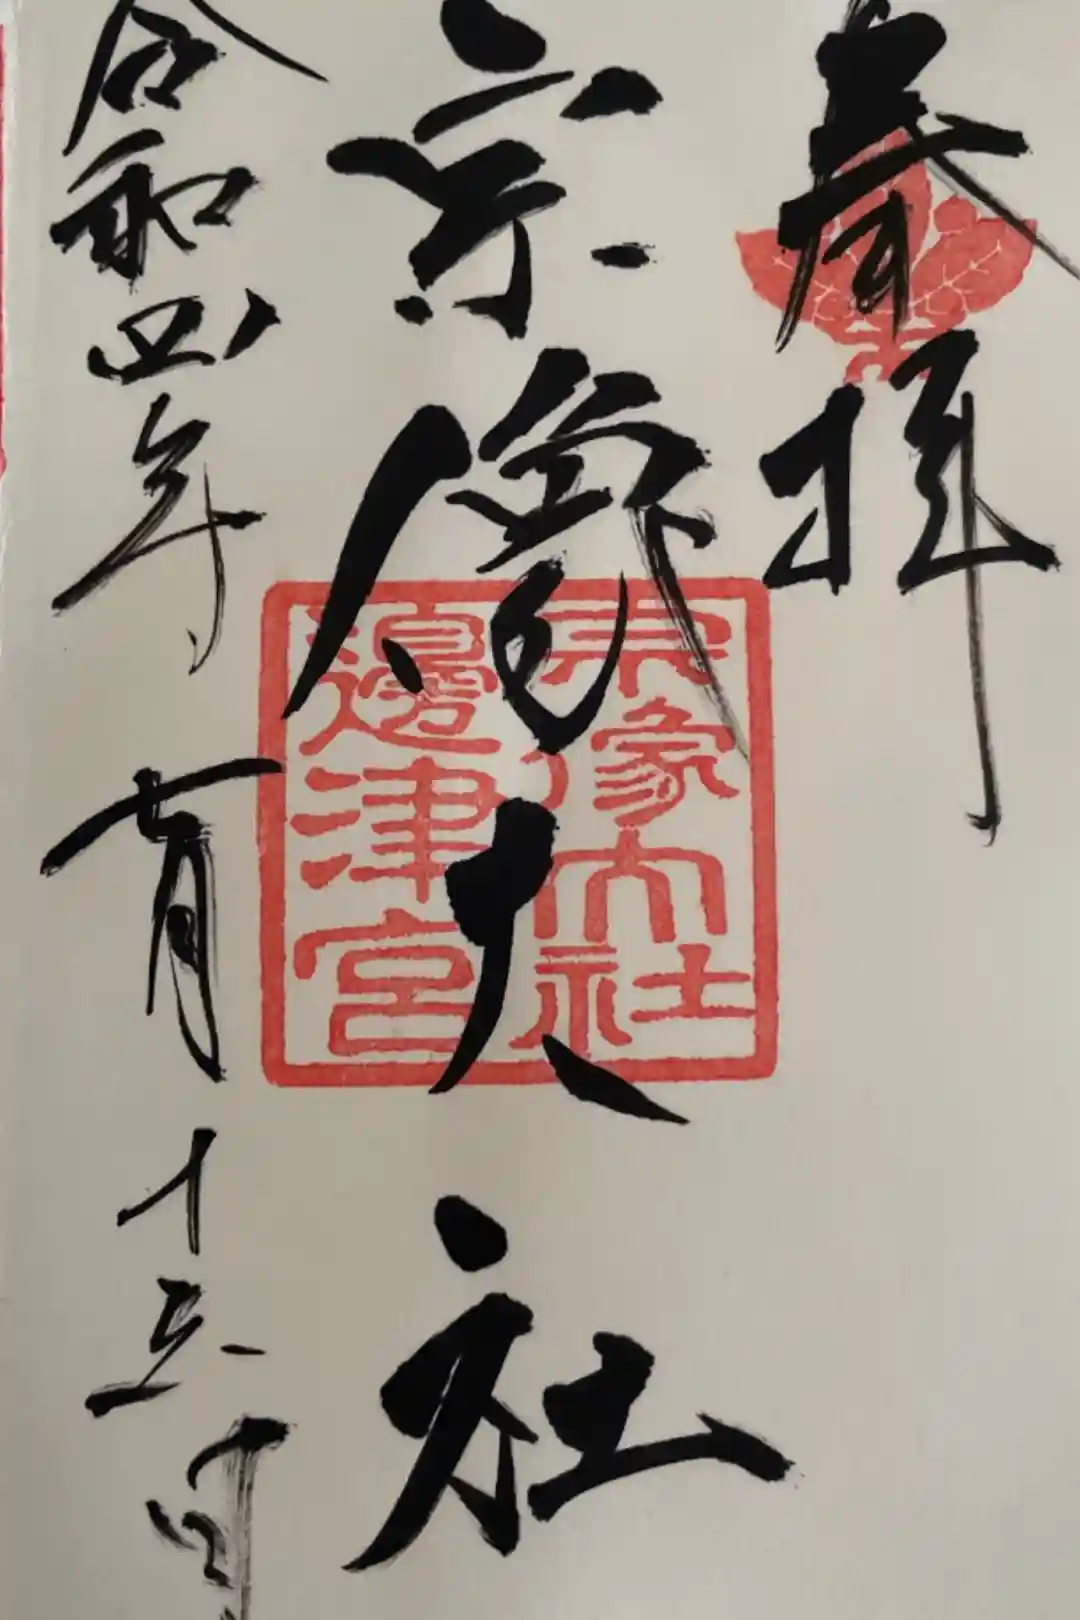 奉拝
宗像大社
令和四年七月十五日
宗像大社
邊津宮